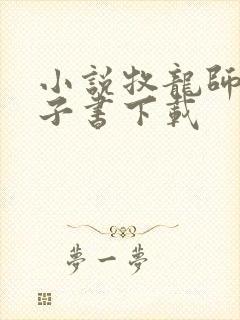 小説牧龍師
子書下載
夢一夢